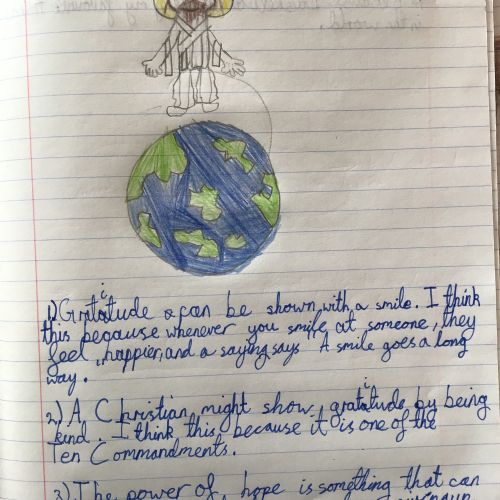 1) Gratitude can be shown with a smile. I think
this because whenever you smile at someone, they
feel happier, and a saying says "A smile goes a long
way.
2) A Christian might show gratitude by being
kind. I think this because it is one of the
Ten Commandments.
3) The power of hope is something that can